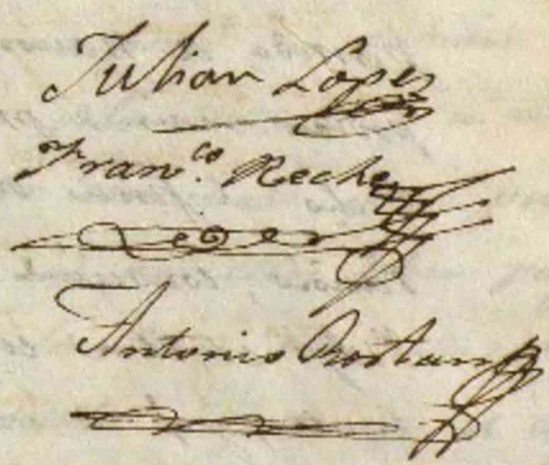 Julian Lopez
Fran.co Reche
Antonio